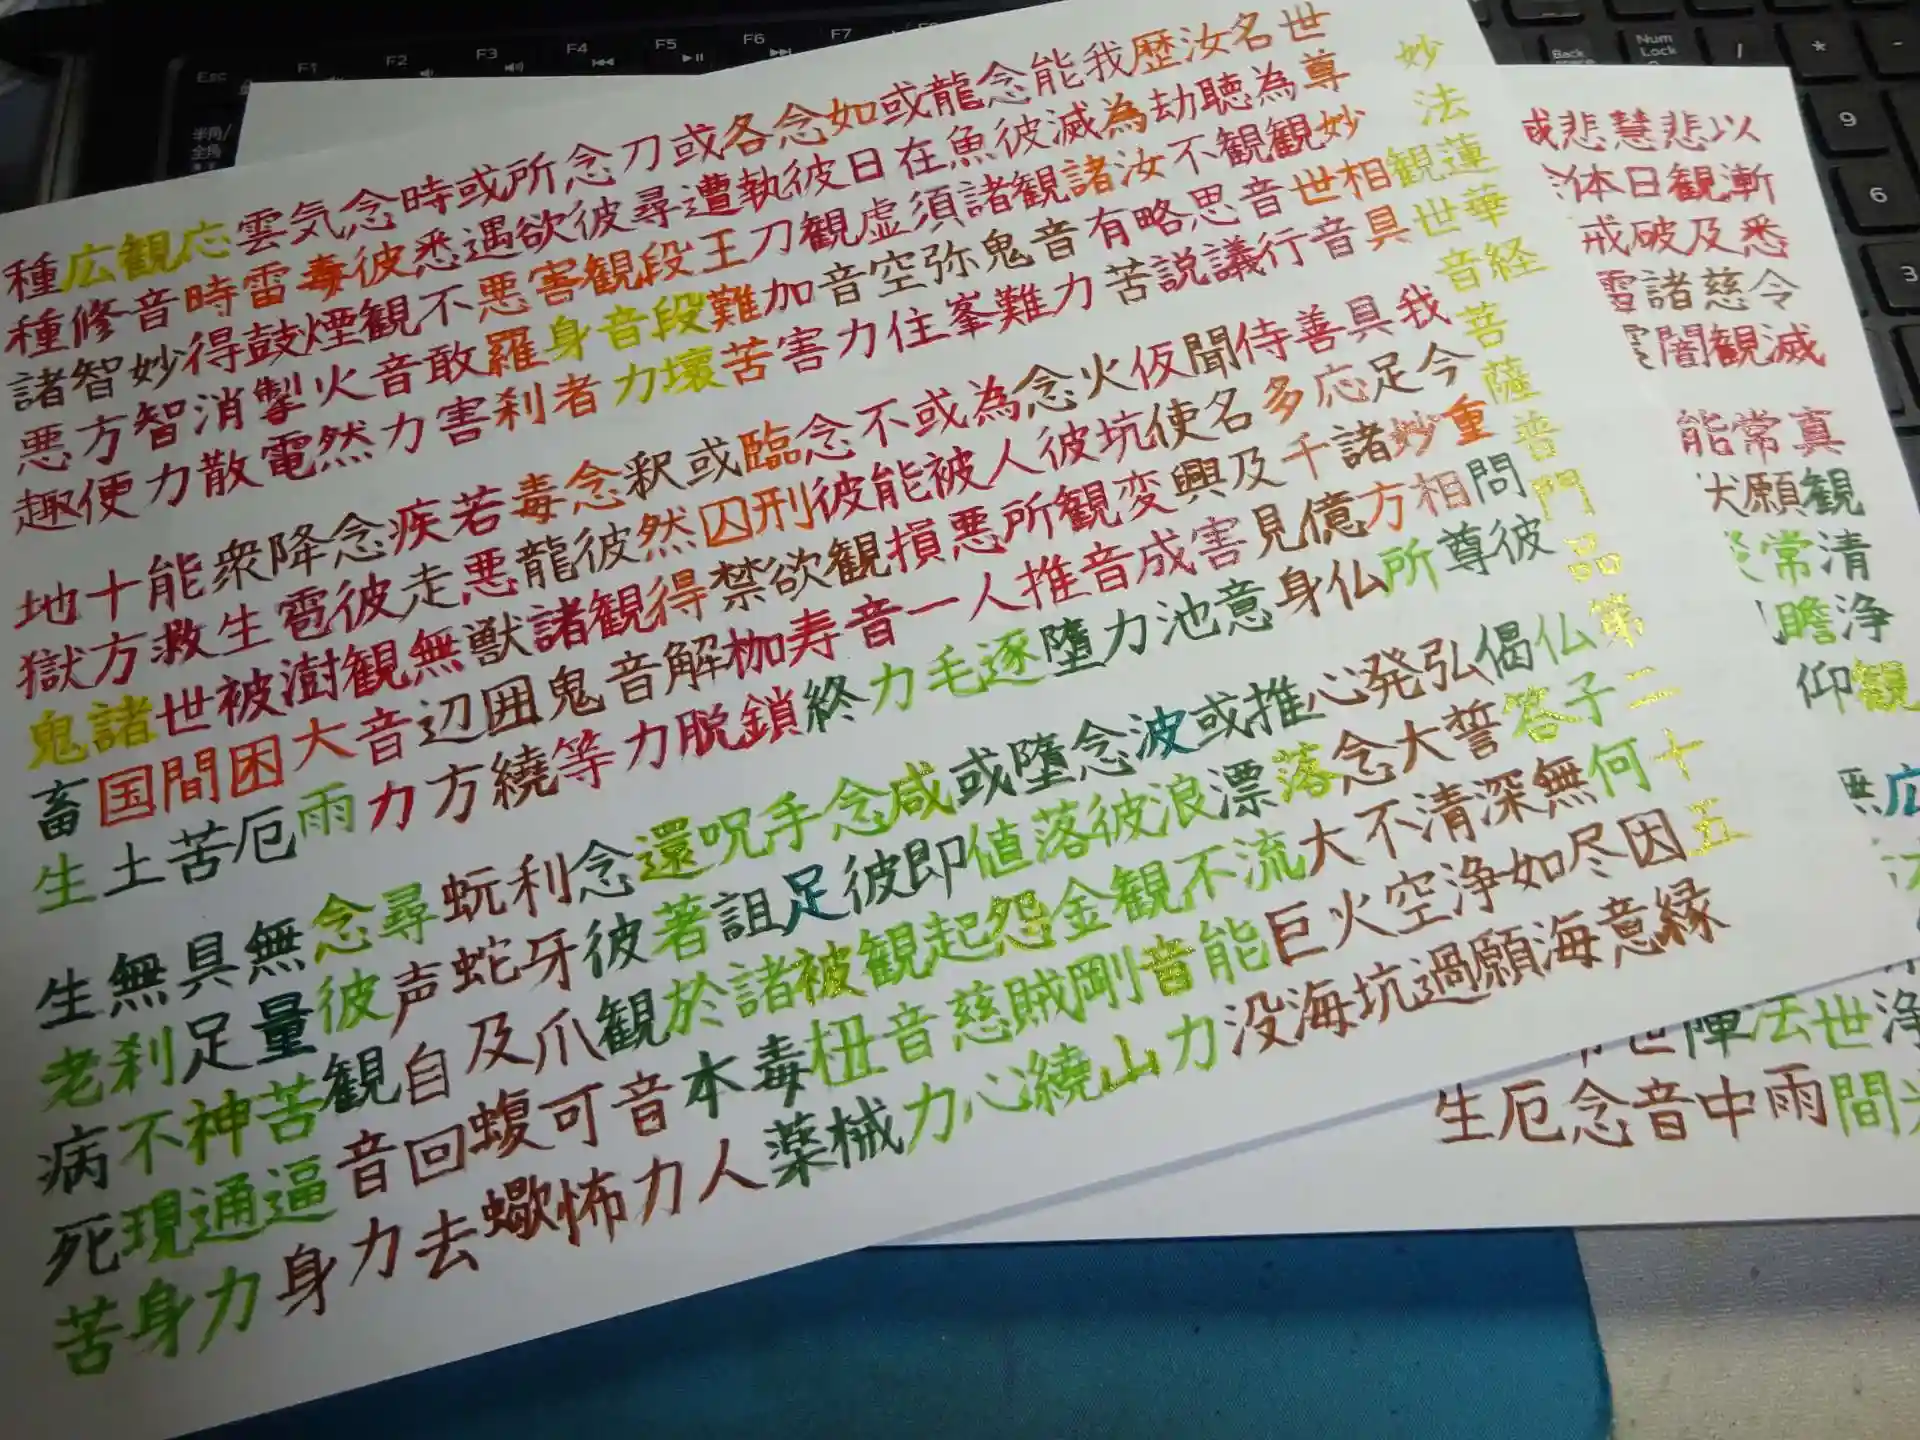 妙法蓮華経
観世音菩薩普門品第二十五
世尊妙相具 我今重問彼 仏子何因縁
名為観世音 具足妙相尊 偈答無尽意
汝聴観音行 善応諸方所 弘誓深如海
歴劫不思議 侍多千億仏 発大清浄願
我為汝略説 聞名及見身 心念不空過
能滅諸有苦 仮使興害意 推落大火坑
念彼観音力 火坑変成池 或漂流巨海
龍魚諸鬼難 念彼観音力 波浪不能没
或在須弥峯 為人所推墮 念彼観音力
如日虚空住 或被悪人逐 墮落金剛山
念彼観音力 不能損一毛 或値怨賊繞
各執刀加害 念彼観音力 咸即起慈心
或遭王難苦 臨刑欲寿終 念彼観音力
刀尋段段壊 或囚禁枷鎖 手足被杻械
念彼観音力 釈然得解脱 呪詛諸毒薬
所欲害身者 念彼観音力 還著於本人
或遇悪羅刹 毒龍諸鬼等 念彼観音力
時悉不敢害 若悪獣囲繞 利牙爪可怖
念彼観音力 疾走無辺方 蚖蛇及蝮蠍
気毒煙火然 念彼観音力 尋声自回去
雲雷鼓掣電 降雹澍大雨 念彼観音力
応時得消散 衆生被困厄 無量苦逼身
観音妙智力 能救世間苦 具足神通力
広修智方便 十方諸国土 無刹不現身
種種諸悪趣 地獄鬼畜生 生老病死苦
以漸悉令滅 真観清浄観 広
悲観及慈観 常願常瞻仰
慧日破諸闇 能
悲体戒